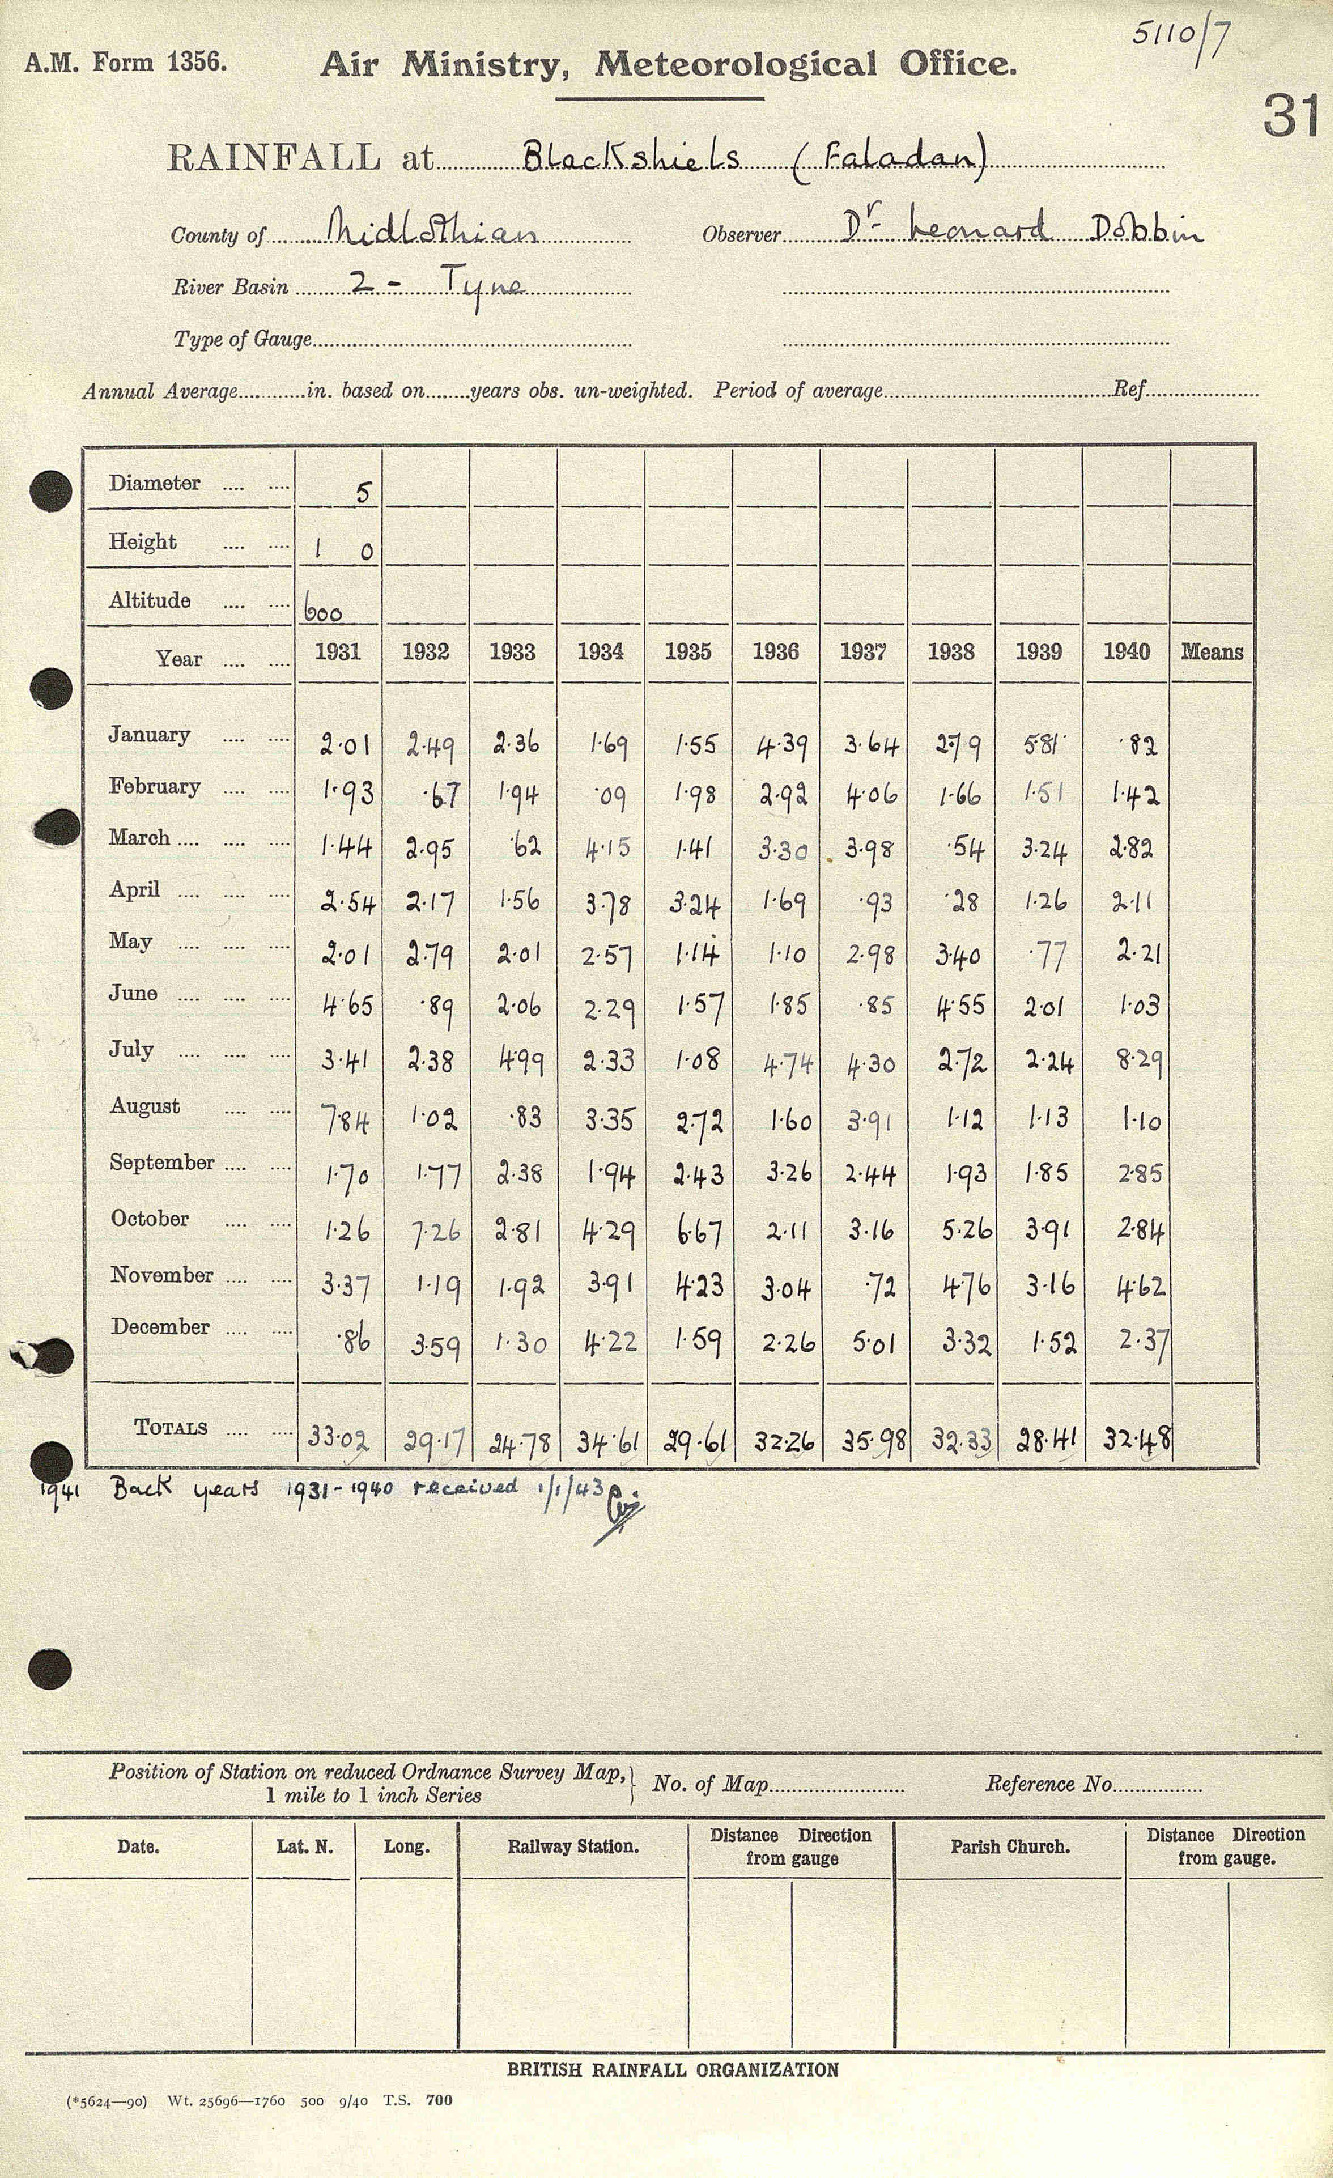 5110/7
A.M. Form 1356. Air Ministry, Meteorological Office.
31
RAINFALL at Blackshiels (Faladan)
County of Midlothian Observer Dr. Leonard Dobbin
River Basin 2 - Tyne
Type of Gauge
Annual Average in. based on years obs. un-weighted. Period of average Ref.
Diameter 5
Height 1 0
Altitude 600
Year 1931 1932 1933 1934 1935 1936 1937 1938 1939 1940 Means
January 2.01 2.49 2.36 1.69 1.55 4.39 3.64 2.79 5.81 .82
February 1.93 .67 1.94 .09 1.98 2.92 4.06 1.66 1.51 1.42
March 1.44 2.95 .62 4.15 1.41 3.30 3.98 .54 3.24 2.82
April 2.54 2.17 1.56 3.78 3.24 1.69 .93 .28 1.26 2.11
May 2.01 2.79 2.01 2.57 1.14 1.10 2.98 3.40 .77 2.21
June 4.65 .89 2.06 2.29 1.57 1.85 .85 4.55 2.01 1.03
July 3.41 2.38 4.99 2.33 1.08 4.74 4.30 2.72 2.24 8.29
August 7.84 1.02 .83 3.35 2.72 1.60 3.91 1.12 1.13 1.10
September 1.70 1.77 2.38 1.94 2.43 3.26 2.44 1.93 1.85 2.85
October 1.26 7.26 2.81 4.29 6.67 2.11 3.16 5.26 3.91 2.84
November 3.37 1.19 1.92 3.91 4.23 3.04 .72 4.76 3.16 4.62
December .86 3.59 1.30 4.22 1.59 2.26 5.01 3.32 1.52 2.37
TOTALS 33.02 29.17 24.78 34.61 29.61 32.26 35.98 32.33 28.41 32.48
1941 Back years 1931-1940 received 1/1/43
Position of Station on reduced Ordnance Survey Map,
1 mile to 1 inch Series No. of Map Reference No.
Date. Lat. N. Long. Railway Station. Distance Direction from gauge Parish Church. Distance Direction from gauge.
BRITISH RAINFALL ORGANIZATION
(*5624—90) Wt. 25696—1760 500 9/40 T.S. 700